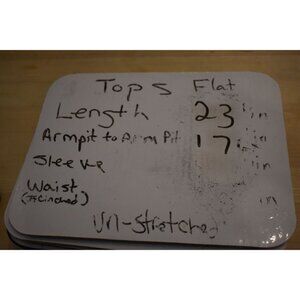 Tops Flat
Length 23 in
Armpit to Arm Pit 17 in
Sleeve in
Waist in
(If Cinched)
Un-Stretched